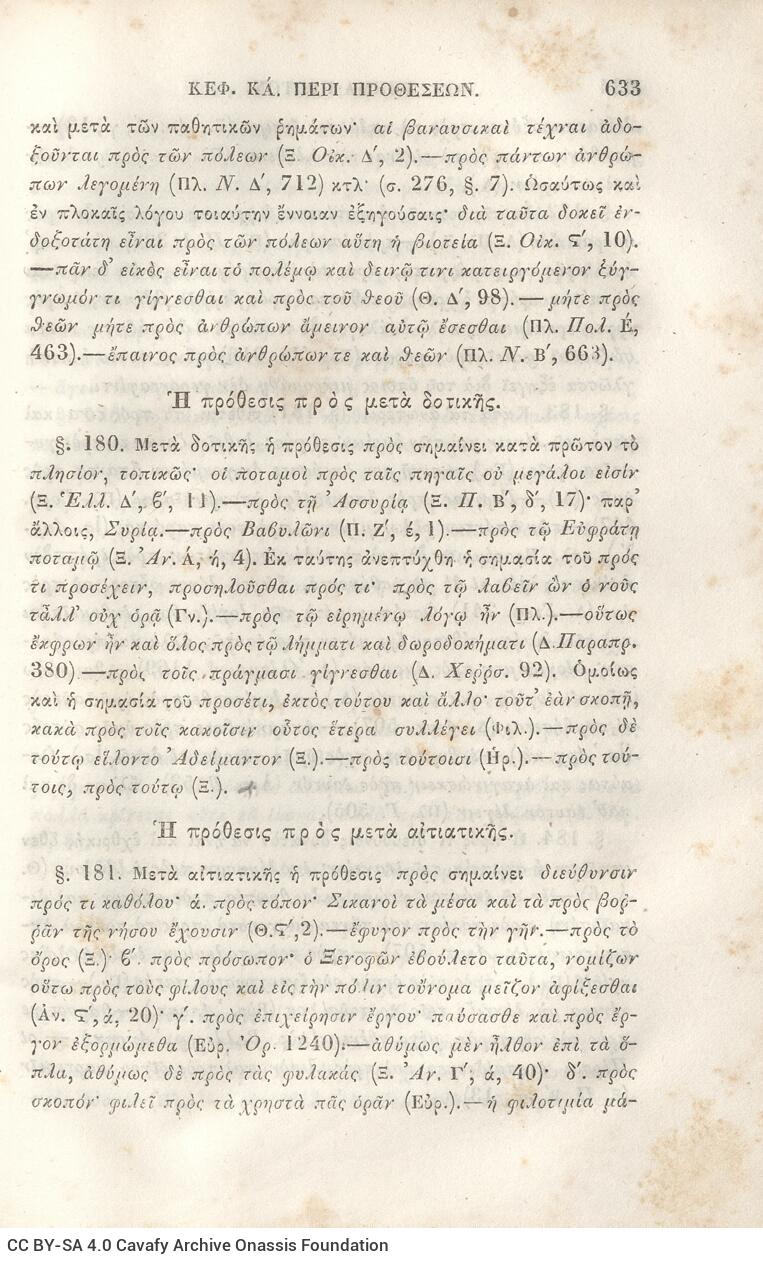 ΚΕΦ. ΚΆ. ΠΕΡΙ ΠΡΟΘΕΣΕΩΝ. 633
καὶ μετὰ τῶν παθητικῶν ῥημάτων· αἱ βαναυσικαὶ τέχναι ἀδο-
ξοῦνται πρὸς τῶν πόλεων (Ξ. Οἰκ. Δ΄, 2).—πρὸς πάντων ἀνθρώ-
πων λεγομένη (Πλ. Ν. Δ΄, 712) κτλ· (σ. 276, §. 7). Ὡσαύτως καὶ
ἐν πλοκαῖς λόγου τοιαύτην ἔννοιαν ἐξηγούσαις· διὰ ταῦτα δοκεῖ ἐν-
δοξοτάτη εἶναι πρὸς τῶν πόλεων αὕτη ἡ βιοτεία (Ξ. Οἰκ. Ϛ΄, 10).
—πᾶν δ᾽ εἰκὸς εἶναι τὸ πολέμῳ καὶ δεινῷ τινι κατειργόμενον ξύγ-
γνωμόν τι γίγνεσθαι καὶ πρὸς τοῦ θεοῦ (Θ. Δ΄, 98).—μήτε πρὸς
θεῶν μήτε πρὸς ἀνθρώπων ἄμεινον αὐτῷ ἔσεσθαι (Πλ. Πολ. Έ,
463).—ἔπαινος πρὸς ἀνθρώπων τε καὶ θεῶν (Πλ. Ν. Β΄, 663).
Ἡ πρόθεσις πρὸς μετὰ δοτικῆς.
§. 180. Μετὰ δοτικῆς ἡ πρόθεσις πρὸς σημαίνει κατὰ πρῶτον τὸ
πλησίον, τοπικῶς· οἱ ποταμοὶ πρὸς ταῖς πηγαῖς οὐ μεγάλοι εἰσίν
(Ξ. Ἑλλ. Δ΄, β΄, 11).—πρὸς τῇ Ἀσσυρίᾳ (Ξ. Π. Β΄, δ΄, 17)· παρ᾽
ἄλλοις, Συρίᾳ.—πρὸς Βαβυλῶνι (Π. Ζ΄, έ, 1).—πρὸς τῷ Εὐφράτῃ
ποταμῷ (Ξ. Ἀν. Ά, ή, 4). Ἐκ ταύτης ἀνεπτύχθη ἡ σημασία τοῦ πρός
τι προσέχειν, προσηλοῦσθαι πρός τι· πρὸς τῷ λαβεῖν ὢν ὁ νοῦς
τἆλλ᾽ οὐχ ὁρᾷ (Γν.).—πρὸς τῷ εἰρημένῳ λόγῳ ἦν (Πλ.).—οὕτως
ἔκφρων ἦν καὶ ὅλος πρὸς τῷ λήμματι καὶ δωροδοκήματι (Δ. Παραπρ.
380).—πρὸς τοῖς πράγμασι γίγνεσθαι (Δ. Χερρσ. 92). Ὁμοίως
καὶ ἡ σημασία τοῦ προσέτι, ἐκτὸς τούτου καὶ ἄλλο· τοῦτ᾽ ἐὰν σκοπῇ,
κακὰ πρὸς τοῖς κακοῖσιν οὗτος ἕτερα συλλέγει (Φιλ.).—πρὸς δὲ
τούτῳ εἵλοντο Ἀδείμαντον (Ξ.).—πρὸς τούτοισι (Ἡρ.).—πρὸς τού-
τοις, πρὸς τούτῳ (Ξ.).
Ἡ πρόθεσις πρὸς μετὰ αἰτιατικῆς.
§. 181. Μετὰ αἰτιατικῆς ἡ πρόθεσις πρὸς σημαίνει διεύθυνσιν
πρός τι καθόλου· ά. πρὸς τόπον· Σικανοὶ τὰ μέσα καὶ τὰ πρὸς βορ-
ρᾶν τῆς νήσου ἔχουσιν (Θ. Ϛ΄, 2).—ἔφυγον πρὸς τὴν γῆν.—πρὸς τὸ
ὄρος (Ξ.)· β΄. πρὸς πρόσωπον· ὁ Ξενοφῶν ἐβούλετο ταῦτα, νομίζων
οὕτω πρὸς τοὺς φίλους καὶ εἰς τὴν πόλιν τοὔνομα μεῖζον ἀφίξεσθαι
(Ἀν. Ϛ΄, ά, 20)· γ΄. πρὸς ἐπιχείρησιν ἔργου· παύσασθε καὶ πρὸς ἔρ-
γον ἐξορμώμεθα (Εὐρ. Ὀρ. 1240).—ἀθύμως μὲν ἦλθον ἐπὶ τὰ ὅ-
πλα, ἀθύμως δὲ πρὸς τὰς φυλακάς (Ξ. Ἀν. Γ΄, ά, 40)· δ΄. πρὸς
σκοπόν· φιλεῖ πρὸς τὰ χρηστὰ πᾶς ὁρᾶν (Εὐρ.).—ἡ φιλοτιμία μά-
CC BY-SA 4.0 Cavafy Archive Onassis Foundation